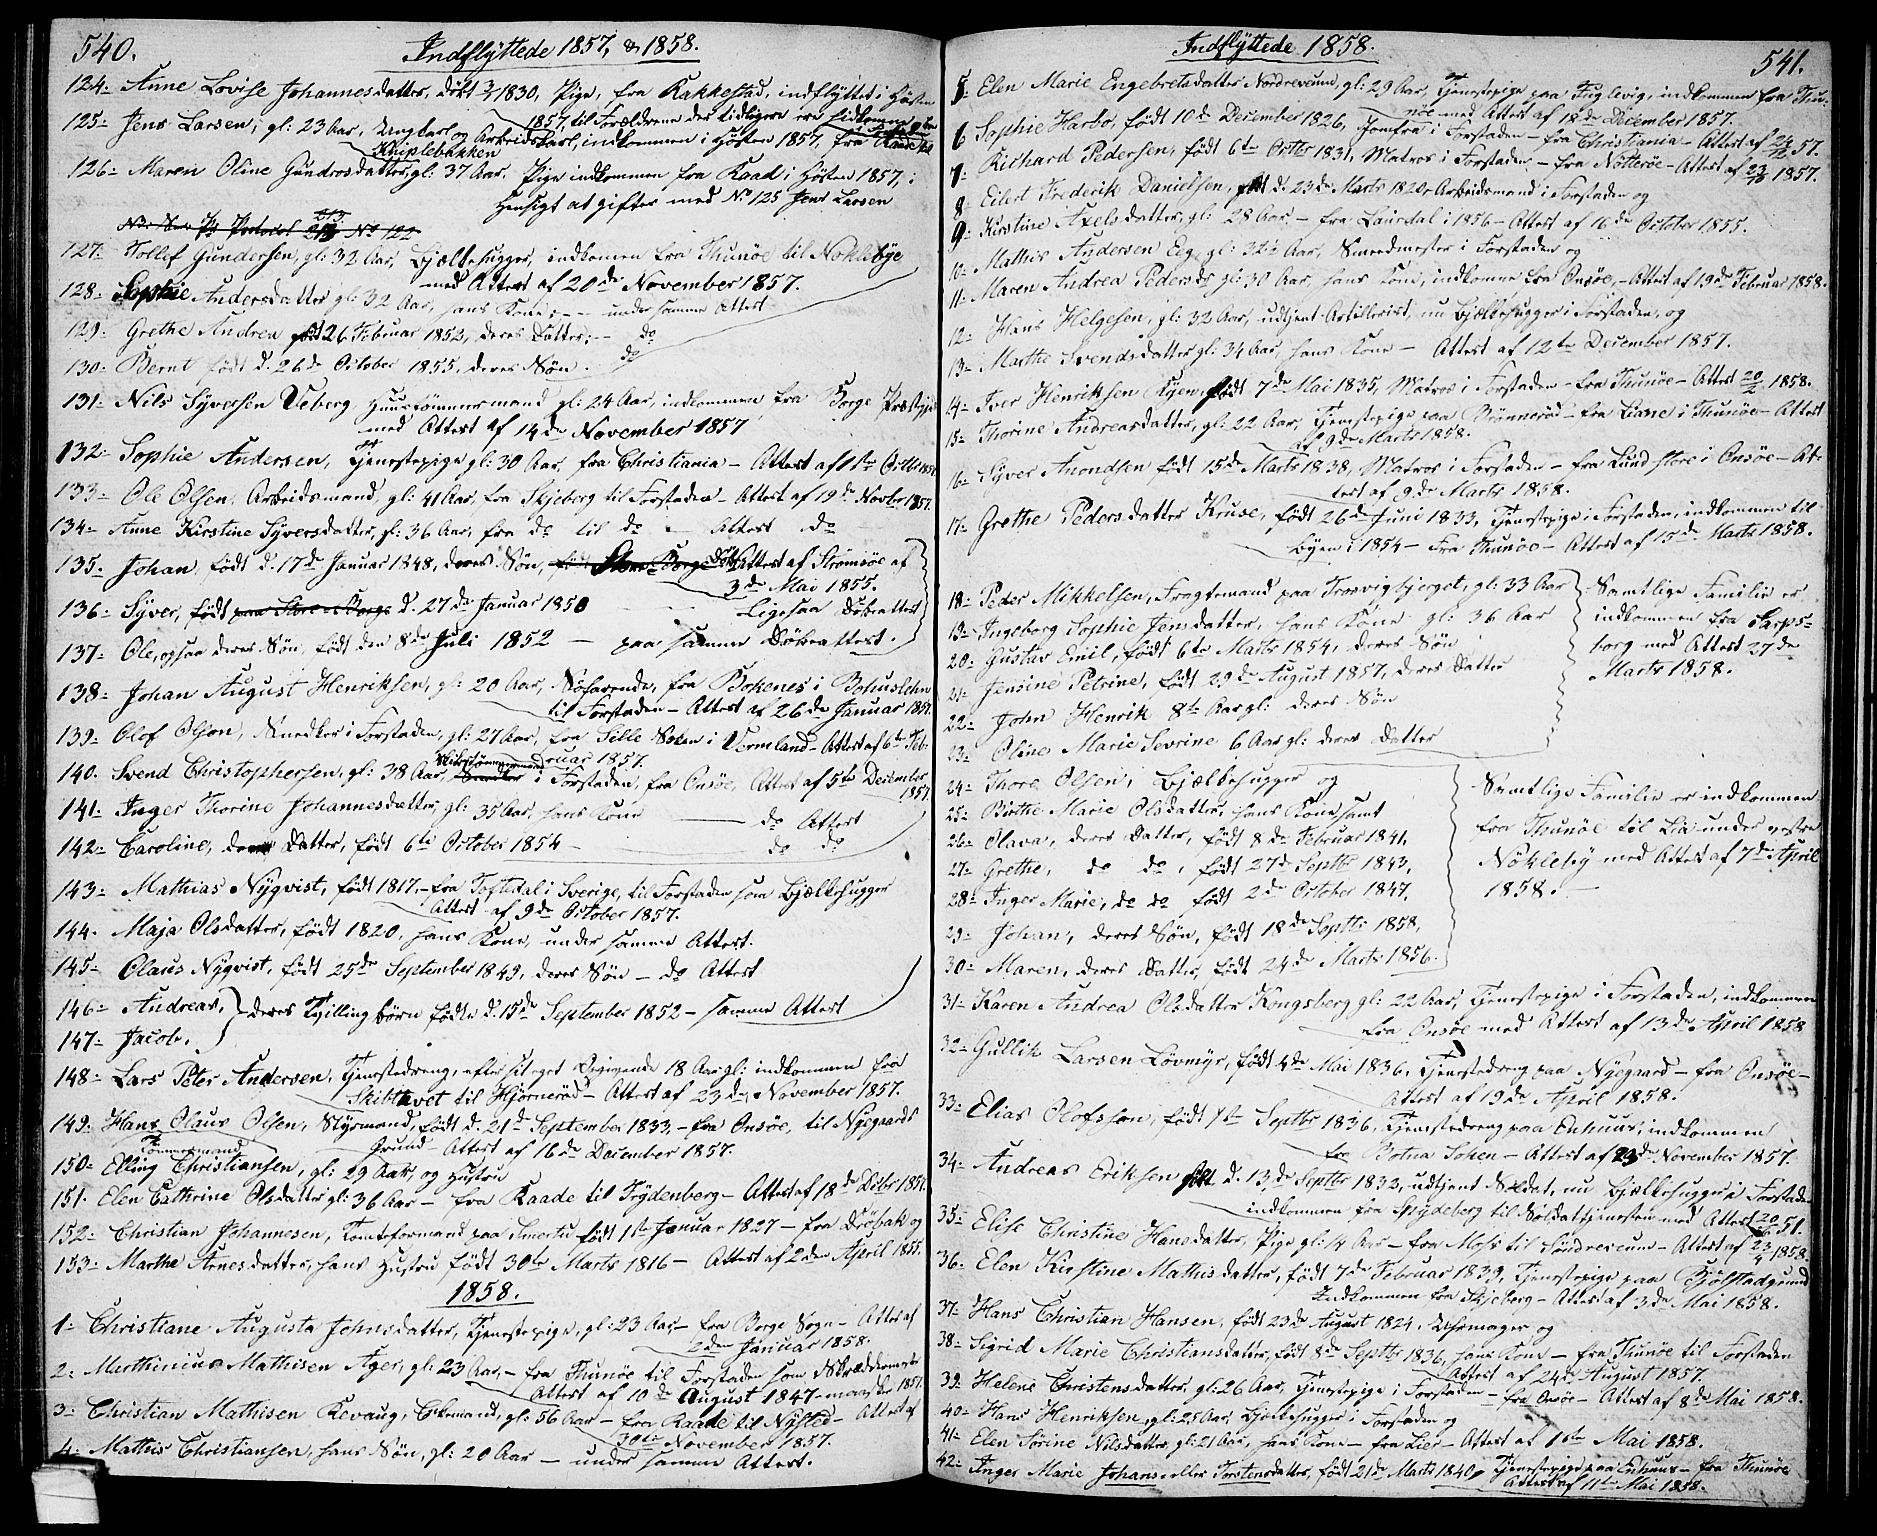 540.
Indflyttede 1857, & 1858.
124- Anne Lovise Johannesdatter, døbt 3/7 1830, Pige, fra Rakkestad, indflyttet i Høsten
1857, til Forældrene der tidligere ere indkomne
125- Jens Larsen, gl: 23 Aar, Ungkarl og Arbeidskarl, indkommen i Høsten 1857, fra Raade
Kniplebakken
126- Maren Oline Gundersdatter, gl: 37 Aar, Pige indkommen fra Raad i Høsten 1857, i
Hensigt at giftes med No. 125 Jens Larsen
127- Tollef Gundersen, gl: 32 Aar, Bjælkehugger, indkomen fra Thunøe til Noklebye
med Attest af 20de November 1857.
128- Sophie Andersdatter gl: 32 Aar, hans Kone, - - under samme Attest
129- Grethe Andrea født 26 Februar 1852, deres Datter, - do
130- Bernt født d. 26de October 1855, deres Søn. do
131- Nils Syversen Veberg, Huustømmermand gl: 24 Aar, indkommen fra Borge Præstegj:
med Attest af 14de November 1857
132- Sophie Andersen, Tjenestepige gl: 30 Aar, fra Christiania - Attest af 1ste Octbr 1857
133- Ole Olsen, Arbeidsmand, gl: 41 Aar, fra Skjeberg til Forstaden - Attest af 19de Novbr 1857.
134- Anne Kirstine Syversdatter, gl: 36 Aar, fra do til do - Attest do
135- Johan, født d. 17de Januar 1848, deres Søn, Attest af Strømsøe af
3de Mai 1855.
136- Syver, født paa Store-Borge d. 27de Januar 1850 - Ligesaa Døbeattest
137- Ole, ogsaa deres Søn, født den 8de Juli 1852 - paa samme Døbeattest.
138- Johan August Henriksen, gl: 20 Aar, Søfarende, fra Bokenes i Bohuslehn
til Forstaden - Attest af 26de Januar 1857.
139- Olof Olson, Snedker i Forstaden, gl: 27 Aar, fra Sille Soken i Vermland - Attest af 6te Feb-
ruar 1857.
140- Svend Christophersen, gl: 38 Aar, Skibstømmermand i Forstaden, fra Onsøe, Attest af 5te December
1857
141- Inger Thorine Johannesdatter, gl: 35 Aar, hans Kone - do Attest
142- Caroline, deres Datter, født 6te October 1854 - do do
143- Mathias Nyqvist, født 1817, - fra Toftedal i Sverige, til Forstaden som Bjælkehugger
Attest af 9de October 1857.
144. Maja Olsdatter, født 1820, hans Kone, under samme Attest.
145- Olaus Nyqvist, født 25de September 1849, deres Søn - do Attest
146- Andreas, } deres Tvillingbørn fødte d. 15de September 1852 - samme Attest
147- Jacob. }
148- Lars Peter Andersen, Tjenestedreng, efter sit eget Opgivende 18 Aar gl: indkommen fra
Skibtvet til Hjørnerød - Attest af 23de November 1857.
149- Hans Olaus Olsen, Styrmand, født d. 21de September 1833, - fra Onsøe, til Nygaards
Grund - Attest af 16de December 1857.
Tømmermand
150- Elling Christiansen, gl: 29 Aar, og Hustru
151. Elen Cathrine Olsdatter gl: 36 Aar - fra Raade til Trydenberg - Attest af 18de Decbr 1857.
152- Christian Johannesen, Tomteformand paa Smertu født 1ste Januar 1827 - fra Drøbak og
153- Marthe Arnesdatter, hans Hustru født 30te Marts 1816 - Attest af 2den April 1855.
1858.
1- Christiane Augusta Johnsdatter, Tjenestepige, gl: 23 Aar - fra Borge Sogn - Attest af
2den Januar 1858.
2- Marthinius Mathisen Ager, gl: 23 Aar, - fra Thunøe til Forstaden som Skræddermester
Attest af 10de August 1847 - maaske 1857.
3- Christian Mathisen Revaug, Enkemand, gl: 56 Aar - fra Raade til Nysted - Attest af
30te November 1857.
4. Mathis Christiansen, hans Søn, gl: 20 Aar - under samme Attest.
Indflyttede 1858.
541.
5- Elen Marie Engebretsdatter Nordreveum, gl: 29 Aar, Tjenestepige paa Fuglevig, indkommen fra Thu-
nøe med Attest af 18de December 1857.
6 Sophie Harbo, født 10de December 1826, Jomfru i Forstaden - fra Christiania - Attest af 24/12 57.
7- Richard Pedersen, født 6te Octbr 1831, Matros i Forstaden - fra Nøtterøe - Attest af 1857.
8- Eilert Frederik Danielsen, født d. 23de Marts 1820, Arbeidsmand i Forstaden og
9- Kirstine Axelsdatter, gl: 28 Aar, - fra Laurdal i 1856 - Attest af 16de October 1855.
10- Mathis Andersen Eeg, gl: 32½ Aar, Smedmester i Forstaden og
11- Maren Andrea Pedersdr gl: 30 Aar, hans Kone, indkomne fra Onsøe, - Attest af 19de Februar 1858.
12- Hans Helgesen, gl: 32 Aar, udtjent Artillerist, nu Bjælkehugger i Forstaden, og
13- Marthe Svendsdatter gl: 34 Aar, hans Kone - Attest af 12te December 1857.
14- Iver Henriksen Kyen, født 7de Mai 1835, Matros i Forstaden - fra Thunøe - Attest 20/2 1858.
15- Thorine Andreasdatter, gl: 22 Aar, Tjenestepige paa Brønnerød - fra Liane i Thunøe - Attest
af 9de Marts 1858.
16- Syver Anondsen født 15de Marts 1838, Matros i Forstaden - fra Lund store i Onsøe - At-
test af 9de Marts 1858.
17- Grethe Pedersdatter Kruse, født 26de Juni 1833, Tjenestepige i Forstaden, indkommen til
byen i 1854 - fra Thunøe - Attest af 15de Marts 1858.
18- Peder Mikkelsen, Fragtemand paa Trosvigbjerget, gl: 33 Aar
19- Ingeborg Sophie Jensdatter, hans Kone gl: 36 Aar
20- Gustav Emil, født 6te Marts 1854, deres Søn
21- Jensine Petrine, født 29de August 1857, deres Datter
22- John Henrik 8te Aar gl: deres Søn
23- Oline Marie Sevrine 6 Aar gl: deres Datter
Samtlige Familie er
indkommen fra Sarps-
borg med Attest 27de
Marts 1858.
24- Thore Olsen, Bjælkehugger og
25- Birthe Marie Olsdatter, hans Kone samt
26- Olava, deres Datter, født 8de Februar 1841,
27- Grethe, do do, født 27de Septbr 1843,
28- Inger Marie, do do født 2de October 1847,
29- Johan, deres Søn, født 18de Septbr: 1858,
30- Maren, deres Datter, født 24de Marts 1856.
Samtlige Familie er indkommen
fra Thunøe til Lia under vestre
Nökleby med Attest af 7de April
1858. -
31- Karen Andrea Olsdatter Kongsberg gl: 22 Aar, Tjenestepige i Forstaden, indkommen
fra Onsøe med Attest af 13de April 1858
32- Gullik Larsen Løvmyr, født 4de Mai 1836, Tjenestedreng paa Nygaard - fra Onsøe -
Attest af 19de April 1858.
33- Elias Olofsson, født 1ste Septbr 1836, Tjenestedreng paa Enhuus, indkommen
fra Botna Sohen - Attest af 23de November 1857.
34- Andreas Eriksen født d. 13de Septbr 1833, udtjent Soldat, nu Bjælkehugger i Forstaden
indkommen fra Spydeberg til Soldattjenesten med Attest 20/6 51.
35- Elise Christine Hansdatter, Pige gl: 14 Aar - fra Moss til Søndreveum - Attest af 23/4 1858.
36- Elen Kirstine Mathisdatter, født 7de Februar 1833, Tjenestepige paa Bjølstadgrund
Indkommen fra Skjeberg - Attest af 3de Mai 1858.
37- Hans Christian Hansen, født 23de August 1824, Uhrmager og
38- Sigrid Marie Christiansdatter, født 8de Septbr 1836, hans Kone - fra Thunøe til Forstaden
Attest af 24de August 1857.
39- Helene Christensdatter, gl: 26 Aar, Tjenestepige i Forstaden - fra Onsøe - Attest af 8de Mai 1858.
40- Hans Henriksen, gl: 25 Aar, Bjælkehugger i Forstaden og
41- Elen Sørine Nilsdatter, gl: 21 Aar, hans Kone - fra Lier - Attest af 1ste Mai 1858.
42- Inger Marie Johans- eller Torstensdatter, født 21de Marts 1840, Tjenestepige paa Enhuus - fra Thunøe
Attest af 11te Mai 1858.